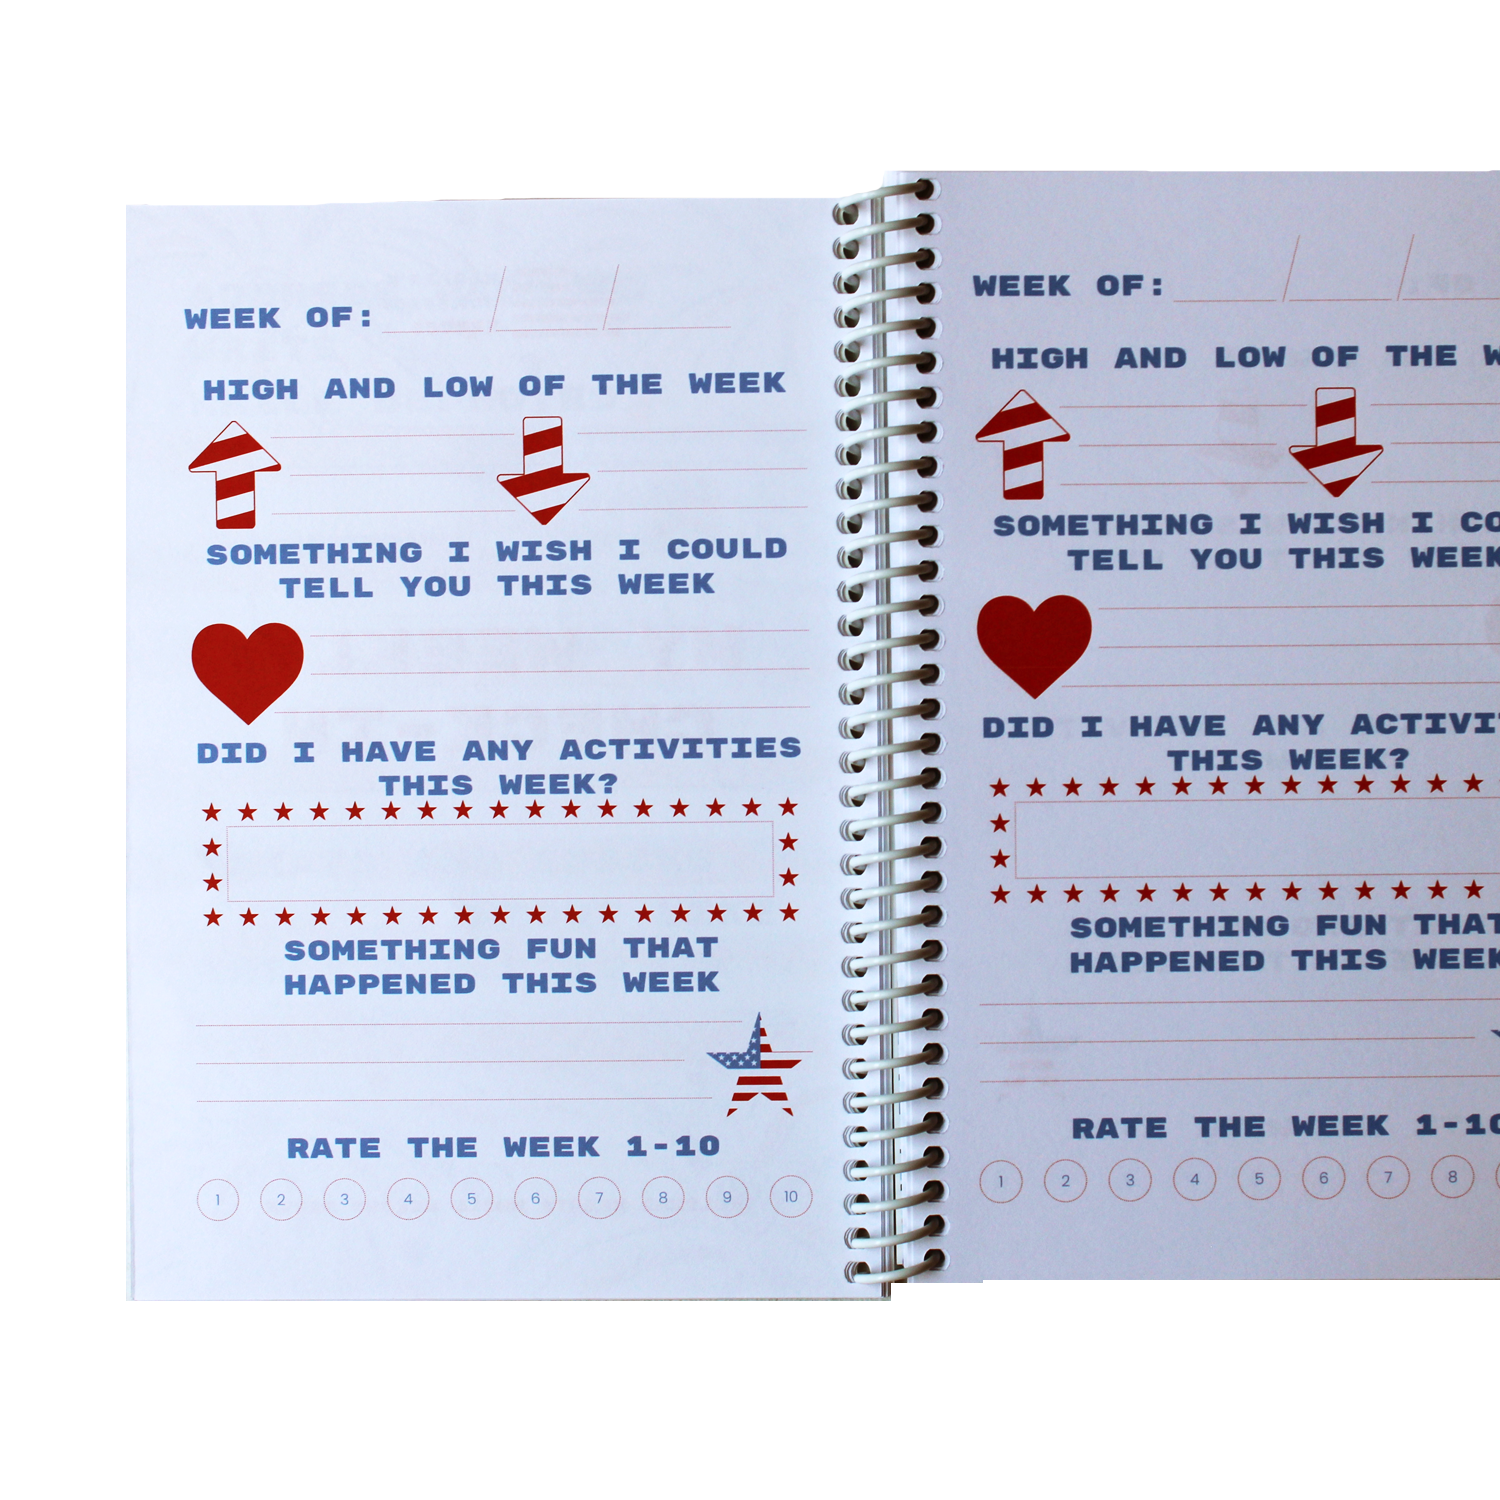 WEEK OF:
HIGH AND LOW OF THE WEEK
SOMETHING I WISH I COULD
TELL YOU THIS WEEK
DID I HAVE ANY ACTIVITIES
THIS WEEK?
SOMETHING FUN THAT
HAPPENED THIS WEEK
RATE THE WEEK 1-10
1 2 3 4 5 6 7 8 9 10
WEEK OF:
HIGH AND LOW OF THE
SOMETHING I WISH I
TELL YOU THIS WEEK
DID I HAVE ANY
THIS WEEK?
SOMETHING FUN THAT
HAPPENED THIS WEEK
RATE THE WEEK 1-10
1 2 3 4 5 6 7 8